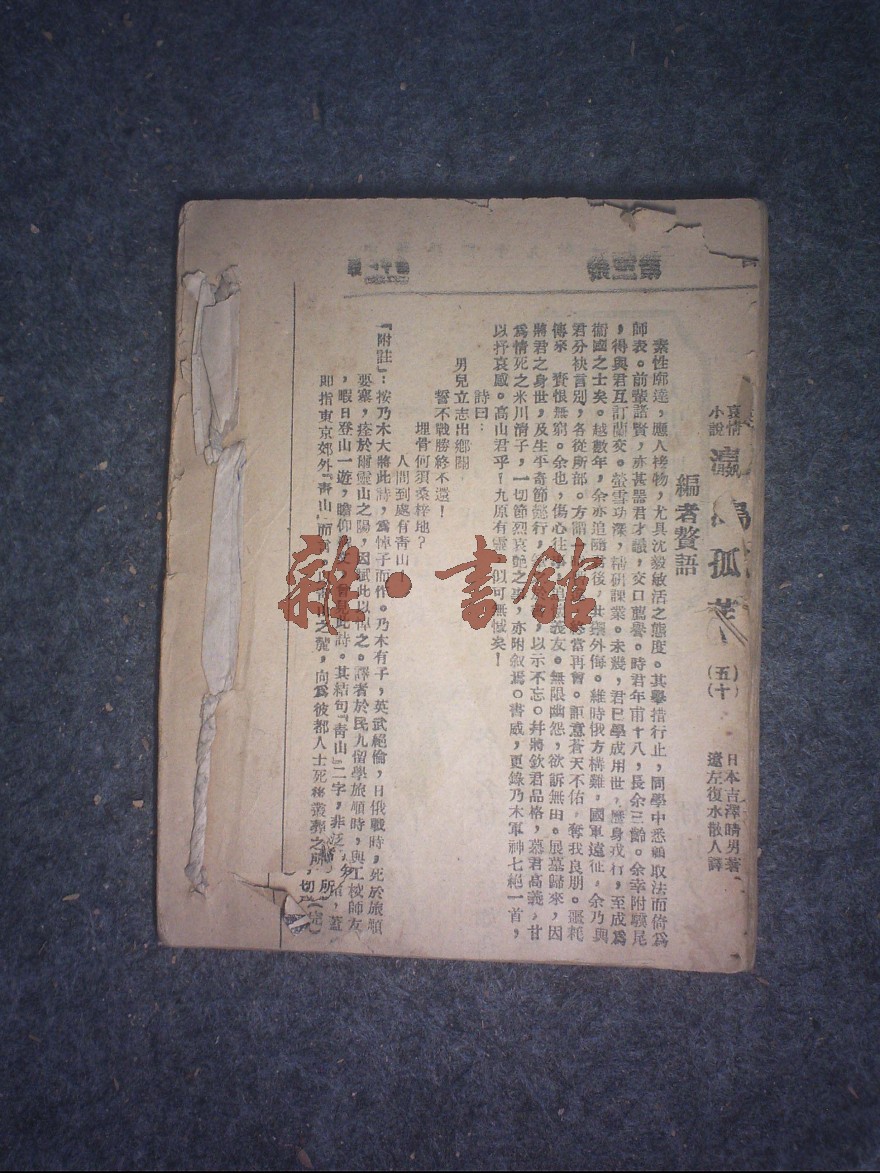 哀情
小說
孤
(五十)
日本吉澤晴男著
遼左復水散人譯
編者贅語
素性廓達,應人接物,尤具沈毅敏活之態度。其舉措行止,同學中悉願取法而倚為
師表。前輩諸賢,亦甚器君才識,交口薦譽。時君年甫十八,長余三齡。余幸附驥尾
,得與君互訂蘭交。螢雪功深,精研課業。未幾,君已學成用世,歷身戎行,至成為
衛國之士矣。越數年,余亦追隨後,世襲外侮。維時俄方構難,國軍遠征,余乃與
君分袂言別,各從所部。方謂當再會。詎意蒼天不佑,奪我良朋。噩耗
傳來,賷恨無窮。余也,傷心往義友。無限幽怨,欲訴無由。展墓歸來,因
將君之身世,及生平奇節懿行,以示不忘。幷將欽君品格,慕君高義,甘
為情死之米川清子,一切節烈哀艷之,亦附叙焉。書成,更錄乃木軍神七絕一首,
以抒哀感。高山君乎!九原有靈似可無憾矣!
詩曰:
男兒立志出鄉關
誓不戰勝終不還!
埋骨何須桑梓地?
人間到處有青山
『附註』:按乃木大將此詩,為悼子而作。乃木有子,英武絕倫,日俄戰時,死於旅順
要塞,瘞於爾靈山之陽,因賦此以悼之。譯者於民九留學旅順時,與工校師友
,暇日登山一遊,瞻仰此詩。其結句『青山』二字,非泛,蓋
即指東京郊外『青山』而之麓,向為彼都人士死葬叢葬之所,(完)
雜·書館